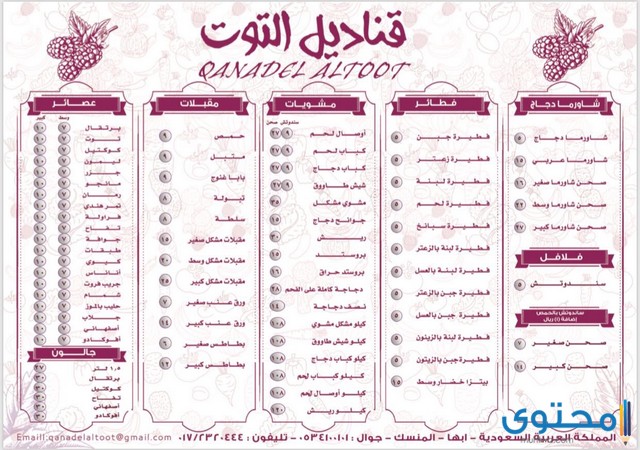 قناديل التوت
QANADEL ALTOOT
شاورما دجاج
شاورما دجاج ٥
شاورما عربي ١٥
صحن شاورما صغير ١٦
صحن شاورما وسط ٢٢
صحن شاورما كبير ٢٧
فلافل
سندوتش ٥
ساندوتش بالحمص
إضافة (١) ريال
صحن صغير ٧
صحن كبير ١٤
فطائر
فطيرة جبن ٥
فطيرة زعتر ٥
فطيرة لبنة ٥
فطيرة لحم ٥
فطيرة سبانخ ٥
فطيرة لبنة بالزعتر ٥
فطيرة لبنة بالعسل ٥
فطيرة جبن بالزعتر ٥
فطيرة جبن بالعسل ٥
فطيرة لبنة بالزيتون ٥
فطيرة جبن بالزيتون ٥
بيتزا خضار وسط ١٥
مشويات
سندوتش صحن
أوصال لحم ٩ ٢٧
كباب لحم ٩ ٢٧
كباب دجاج ٩ ٢٧
شيش طاووق ٩ ٢٧
مشوي مشكل ٣٥
جوانح دجاج ١٥
ريش ٣٠
بروستد ١٥
بروستد حراق ١٦
دجاجة كاملة على الفحم ٢٨
نصف دجاجة ١٤
كيلو مشكل مشوي ١٠٨
كيلو شيش طاووق ١٠٨
كيلو كباب دجاج ١٠٨
كيلو كباب لحم ١٠٨
كيلو أوصال لحم ١٠٨
كيلو ريش ١٢٠
مقبلات
حمص ٩
متبل ٩
بابا غنوج ٩
تبولة ٨
سلطة ٨
مقبلات مشكل صغير ١٥
مقبلات مشكل وسط ٢٠
مقبلات مشكل كبير ٢٥
ورق عنب صغير ٧
ورق عنب كبير ١٤
بطاطس صغير ٦
بطاطس كبير ١٢
عصائر
وسط كبير
برتقال ٧ ١٠
توت ٧ ١٠
كوكتيل ٧ ١٠
ليمون ٧ ١٠
جزر ٧ ١٠
مانجو ٧ ١٠
رمان ٧ ١٠
تمر هندي ٧ ١٠
فراولة ٧ ١٠
تفاح ٧ ١٠
جوافة ٧ ١٠
طبقات ٧ ١٠
كيوي ٧ ١٠
أناناس ٧ ١٠
جريب فروت ٧ ١٠
شمام ٧ ١٠
حليب بالموز ٧ ١٠
جلاب ٧ ١٠
أصفهاني ٧ ١٠
أفوكادو ٧ ١٠
جالون
١,٥ لتر
برتقال
كوكتيل
تفاح
أصفهاني
أفوكادو
المملكة العربية السعودية - ابها - المنسك - جوال : ٠٥٣٤١٠٠١٠١ - تليفون : ٠١٧/٢٣٢٠٤٤٤ Email:qanadelaltoot@gmail.com
محتوى